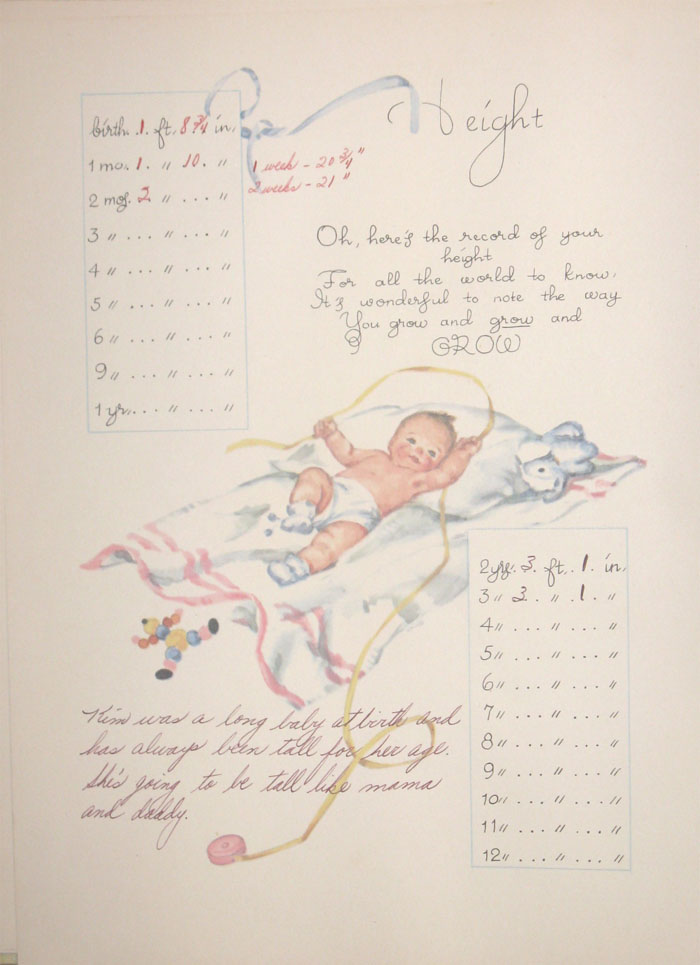 Height
birth. 1. ft. 8 3/4 in.
1 mo. 1. " 10. "
1 week - 20 3/4"
2 weeks - 21"
2 mos. 2 " ... "
3 " ... " ... "
4 " ... " ... "
5 " ... " ... "
6 " ... " ... "
9 " ... " ... "
1 yr. ... " ... "
Oh, here's the record of your
height
For all the world to know,
It's wonderful to note the way
You grow and grow and
GROW
2 yrs. 3. ft. 1. in.
3 " 3. " 1. "
4 " ... " ... "
5 " ... " ... "
6 " ... " ... "
7 " ... " ... "
8 " ... " ... "
9 " ... " ... "
10 " ... " ... "
11 " ... " ... "
12 " ... " ... "
Kim was a long baby at birth and
has always been tall for her age.
She's going to be tall like mama
and daddy.